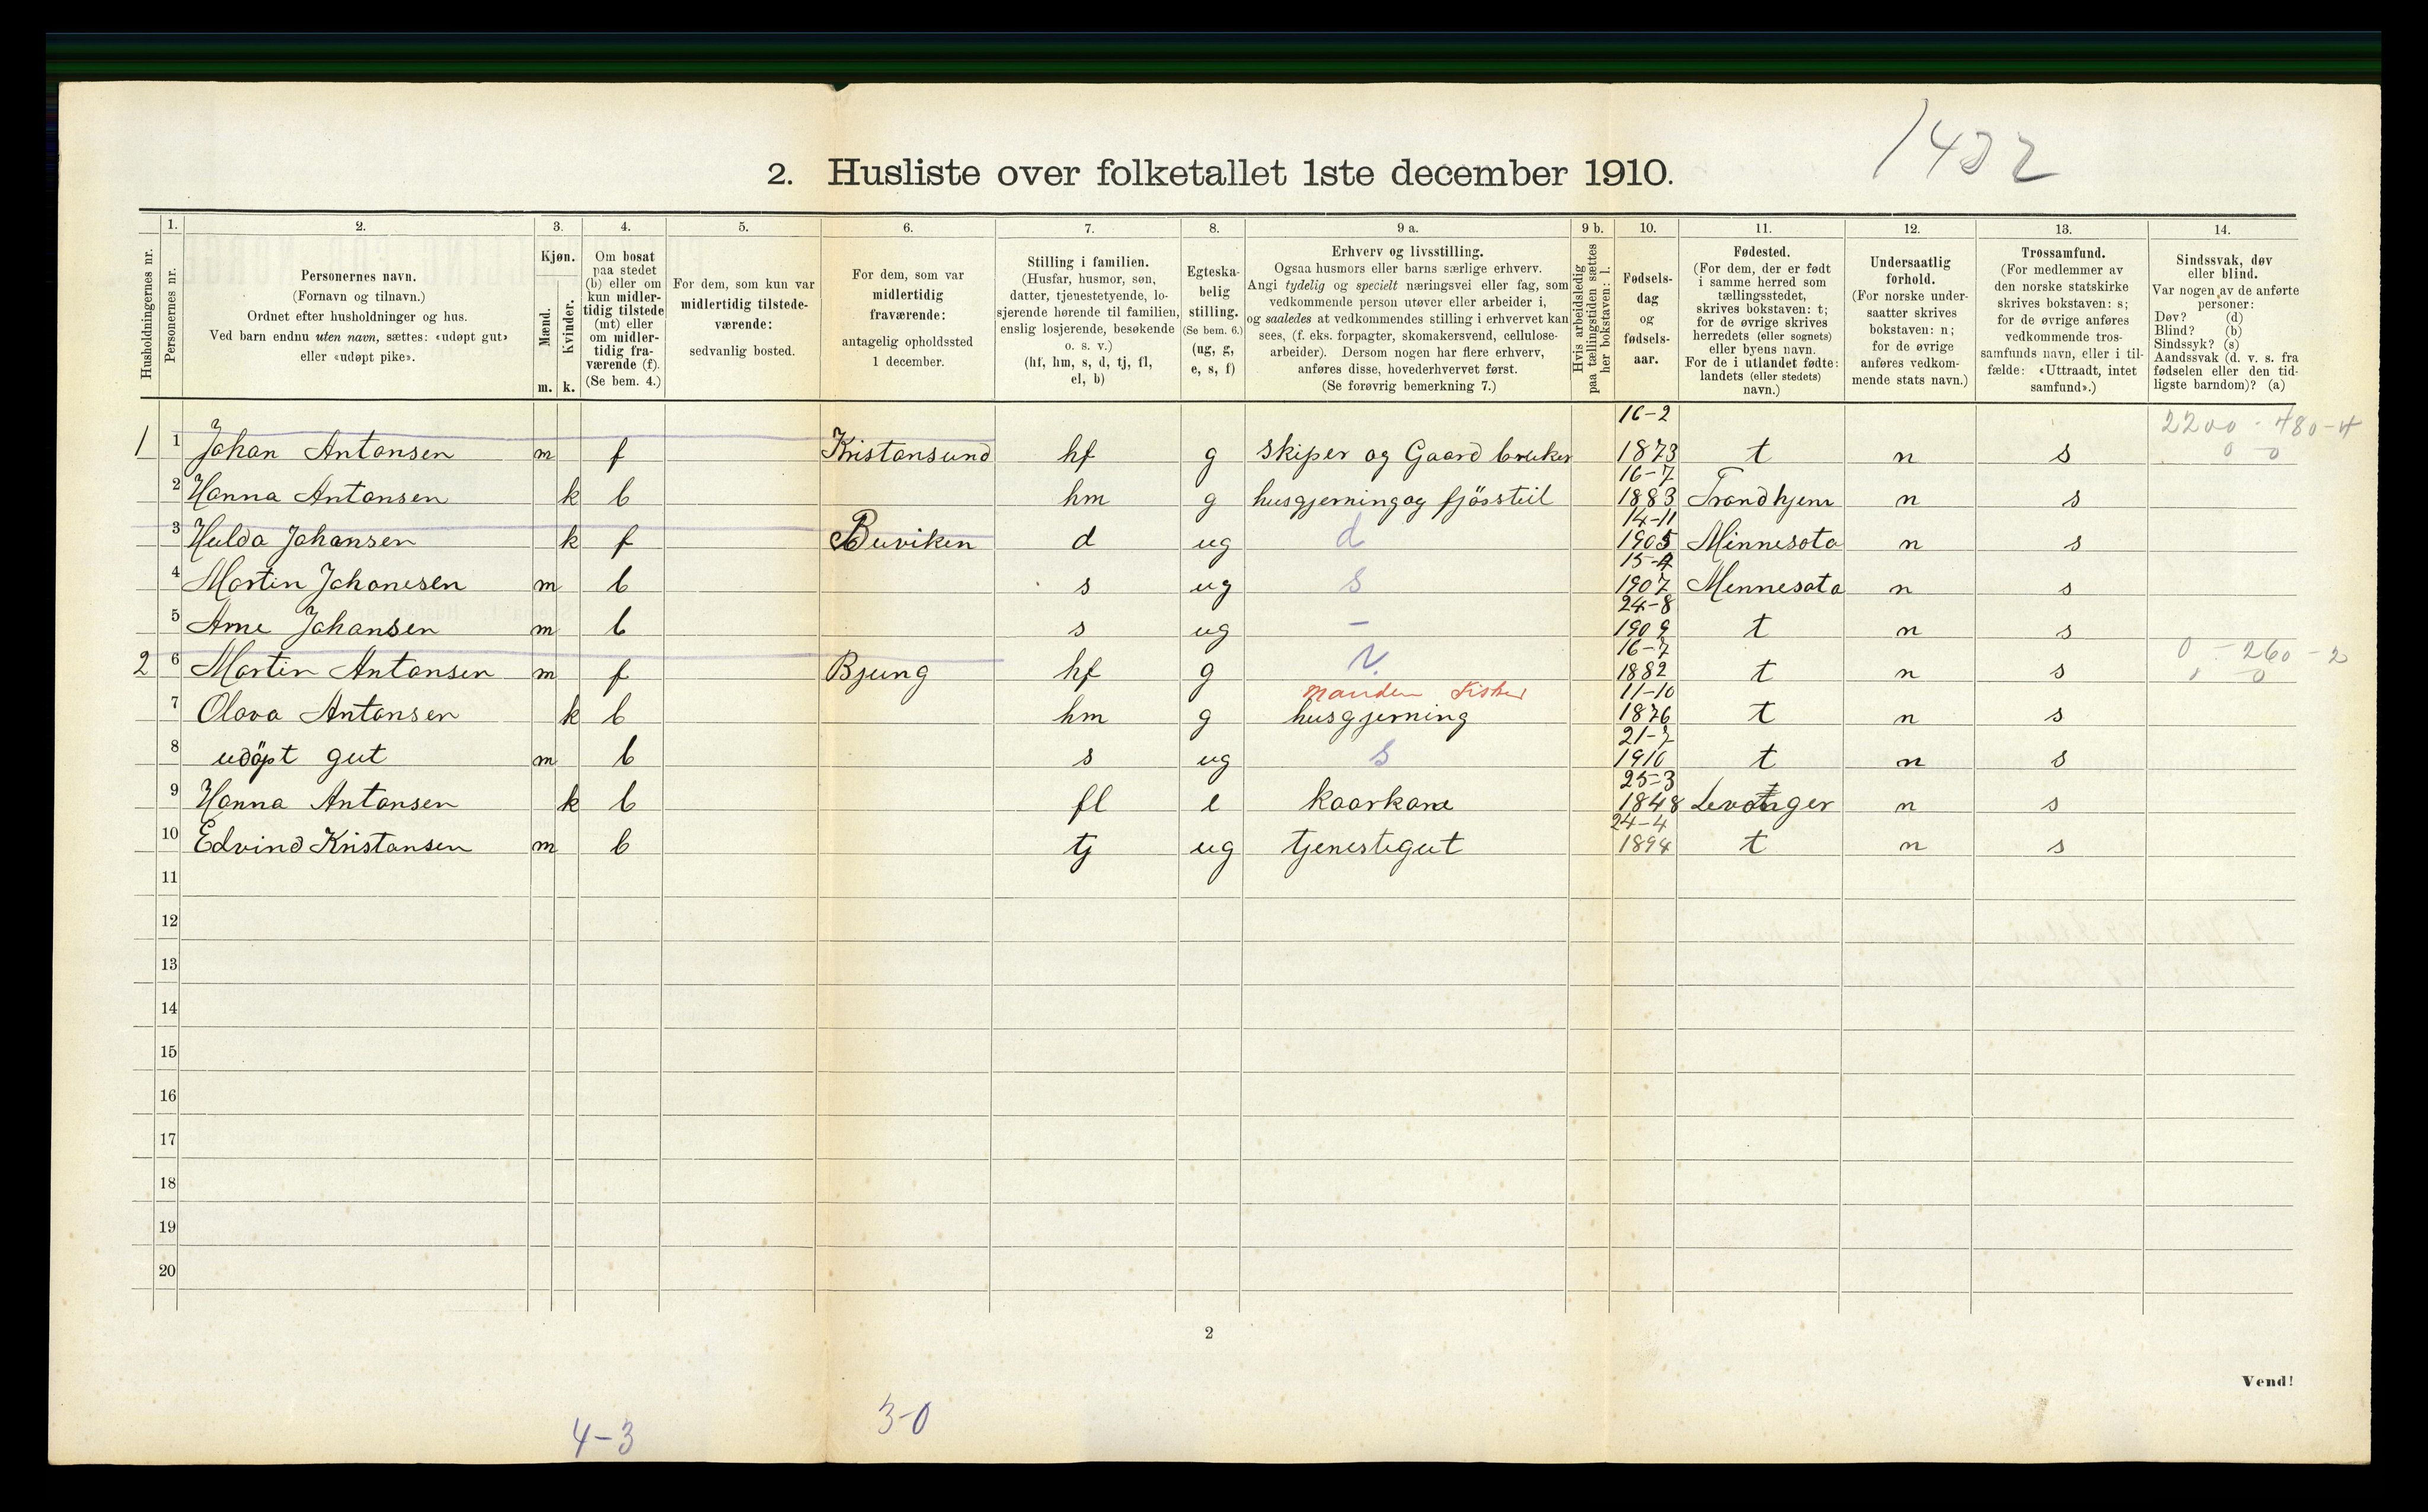 1432
2. Husliste over folketallet 1ste december 1910.
Husholdningernes nr.
1.
Personernes nr.
2.
Personernes navn.
(Fornavn og tilnavn.)
Ordnet efter husholdninger og hus.
Ved barn endnu uten navn, sættes: «udøpt gut»
eller «udøpt pike».
3.
Kjøn.
Mænd.
Kvinder.
m. k.
4.
Om bosat
paa stedet
(b) eller om
kun midler-
tidig tilstede
(mt) eller
om midler-
tidig fra-
værende (f).
(Se bem. 4.)
5.
For dem, som kun var
midlertidig tilstede-
værende:
sedvanlig bosted.
6.
For dem, som var
midlertidig
fraværende:
antagelig opholdssted
1 december.
7.
Stilling i familien.
(Husfar, husmor, søn,
datter, tjenestetyende, lo-
sjerende hørende til familien,
enslig losjerende, besøkende
o. s. v.)
(hf, hm, s, d, tj, fl,
el, b)
8.
Egteska-
belig
stilling.
(Se bem. 6.)
(ug, g,
e, s, f)
9 a.
Erhverv og livsstilling.
Ogsaa husmors eller barns særlige erhverv.
Angi tydelig og specielt næringsvei eller fag, som
vedkommende person utøver eller arbeider i,
og saaledes at vedkommendes stilling i erhvervet kan
sees, (f. eks. forpagter, skomakersvend, cellulose-
arbeider). Dersom nogen har flere erhverv,
anføres disse, hovederhvervet først.
(Se forøvrig bemerkning 7.)
9 b.
Hvis arbeidsledig
paa tællingstiden sættes
her bokstaven: l.
10.
Fødsels-
dag
og
fødsels-
aar.
11.
Fødested.
(For dem, der er født
i samme herred som
tællingsstedet,
skrives bokstaven: t;
for de øvrige skrives
herredets (eller sognets)
eller byens navn.
For de i utlandet fødte:
landets (eller stedets)
navn.)
12.
Undersaatlig
forhold.
(For norske under-
saatter skrives
bokstaven: n;
for de øvrige
anføres vedkom-
mende stats navn.)
13.
Trossamfund.
(For medlemmer av
den norske statskirke
skrives bokstaven: s;
for de øvrige anføres
vedkommende tros-
samfunds navn, eller i til-
fælde: «Uttraadt, intet
samfund».)
14.
Sindssvak, døv
eller blind.
Var nogen av de anførte
personer:
Døv? (d)
Blind? (b)
Sindssyk? (s)
Aandssvak (d. v. s. fra
fødselen eller den tid-
ligste barndom)? (a)
1 1 Johan Antonsen m f Kristansund hf g Skiper og Gaard bruker 16-2 1873 t n s 2200 - 480-4 0 0
2 Hanna Antonsen k b hm g husgjerning og fjösstel 16-7 1883 Trondhjem n s
3 Hulda Johansen k f Buviken d ug d 14-11 1905 Minnesota n s
4 Martin Johanesen m b s ug s 15-4 1907 Mennesota n s
5 Arne Johansen m b s ug - 24-8 1909 t n s
2 6 Martin Antonsen m f Bjung hf g 16-7 1882 t n s 0 - 260 - 2 0
7 Olava Antonsen k b hm g manden Fisker husgjerning 11-10 1876 t n s
8 udöpt gut m b s ug s 21-7 1910 t n s
9 Hanna Antonsen k b fl e kaarkone 25-3 1848 Levanger n s
10 Edvind Kristansen m b tj ug tjenestegut 24-4 1894 t n s
11
12
13
14
15
16
17
18
19
20
2
Vend!
4-3 3-0